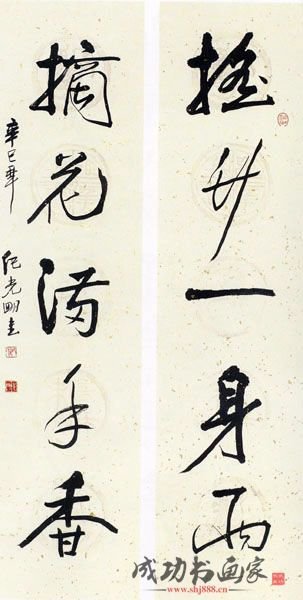 摇竹一身雨
摘花满手香
辛巳年 纪光明书
成功书画家
http://www.shj888.cn